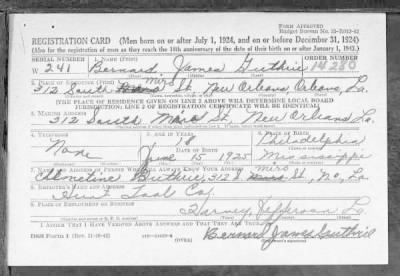 FORM APPROVED
REGISTRATION CARD (Men born on or after July 1, 1924, and on or before December 31, 1924)
(Also for the registration of men as they reach the 18th anniversary of the date of their birth on or after January 1, 1943.)
SERIAL NUMBER 1. NAME (Print) ORDER NUMBER
W 241 Bernard James Guthrie 14280
2. PLACE OF RESIDENCE (Print)
312 South Miro St., New Orleans, Orleans, La.
[THE PLACE OF RESIDENCE GIVEN ON LINE 2 ABOVE WILL DETERMINE LOCAL BOARD
JURISDICTION; LINE 2 OF REGISTRATION CERTIFICATE WILL BE IDENTICAL]
3. MAILING ADDRESS
312 South St. New Orleans La.
4. TELEPHONE 5. AGE IN YEARS 6. PLACE OF BIRTH
18 Philadelphia
DATE OF BIRTH
None June 15 1925 Mississippi
7. NAME AND ADDRESS OF PERSON WHO WILL ALWAYS KNOW YOUR ADDRESS
Guthrie, 312 S. Miro St., No, La
8. EMPLOYER'S NAME AND ADDRESS
Hunt Tool Co.
9. PLACE OF EMPLOYMENT OR BUSINESS
Harvey, Jefferson La
I AFFIRM THAT I HAVE VERIFIED ABOVE ANSWERS AND THAT THEY ARE TRUE.
DSS FORM 1
(OVER)
Bernard James Guthrie